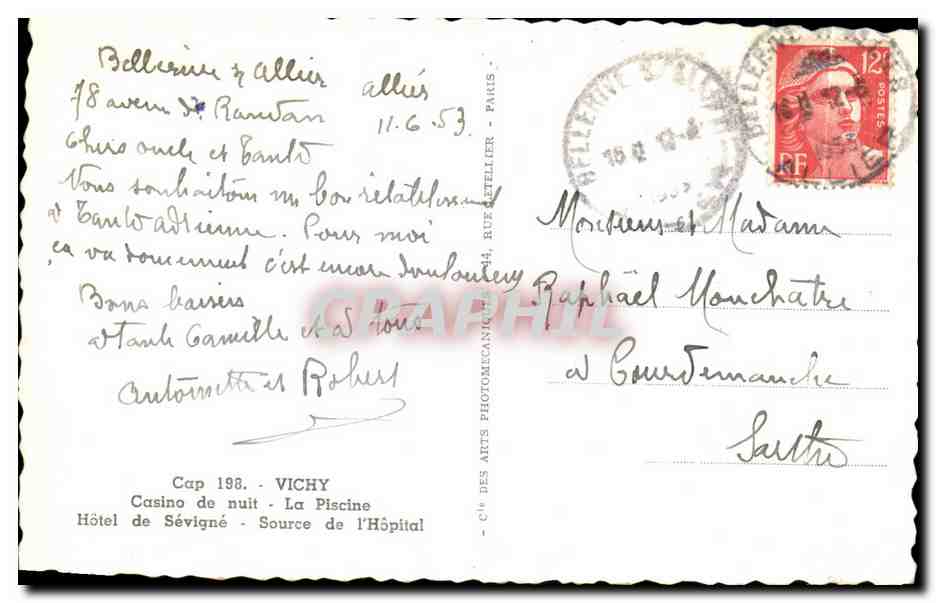 Bellerive s/ Allier
Allier
78 avenue de Randan
11.6.53.
Chers oncle et Tante
Vous souhaitons un bon rétablissement
à Tante Adrienne. Pour moi
ça va doucement c'est encore douloureux
Bons baisers
à tante Camille et à tous
Antoinette et Robert
Cap 198. - VICHY
Casino de nuit - La Piscine
Hôtel de Sévigné - Source de l'Hôpital
Cie DES ARTS PHOTOMECANIQUES 44, RUE LETELLIER - PARIS -
BELLERIVE S. ALLIER
12F
POSTES
RF
Monsieur et Madame
Raphaël Monchâtre
à Courdemanche
Sarthe
CPAPHIL